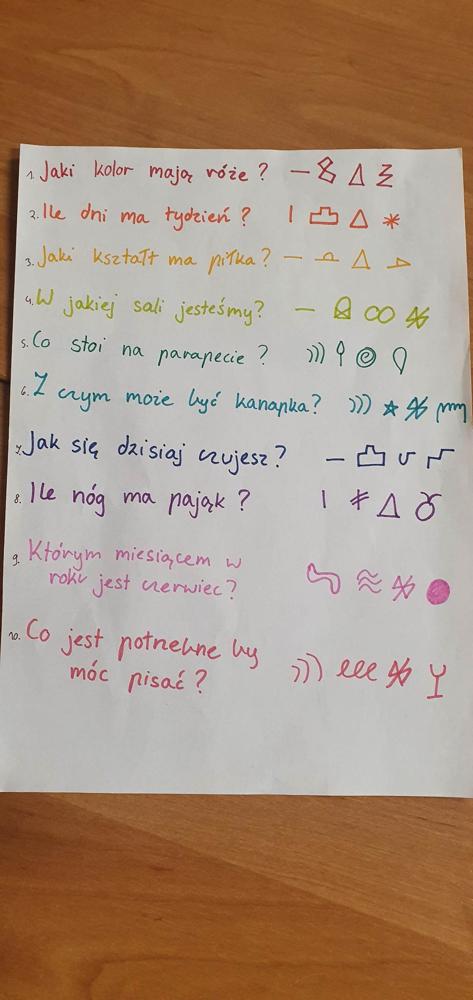 1. Jaki kolor mają róże?
2. Ile dni ma tydzień?
3. Jaki kształt ma piłka?
4. W jakiej sali jesteśmy?
5. Co stoi na parapecie?
6. Z czym może być kanapka?
7. Jak się dzisiaj czujesz?
8. Ile nóg ma pająk?
9. Którym miesiącem w
roku jest czerwiec?
10. Co jest potrzebne by
móc pisać?